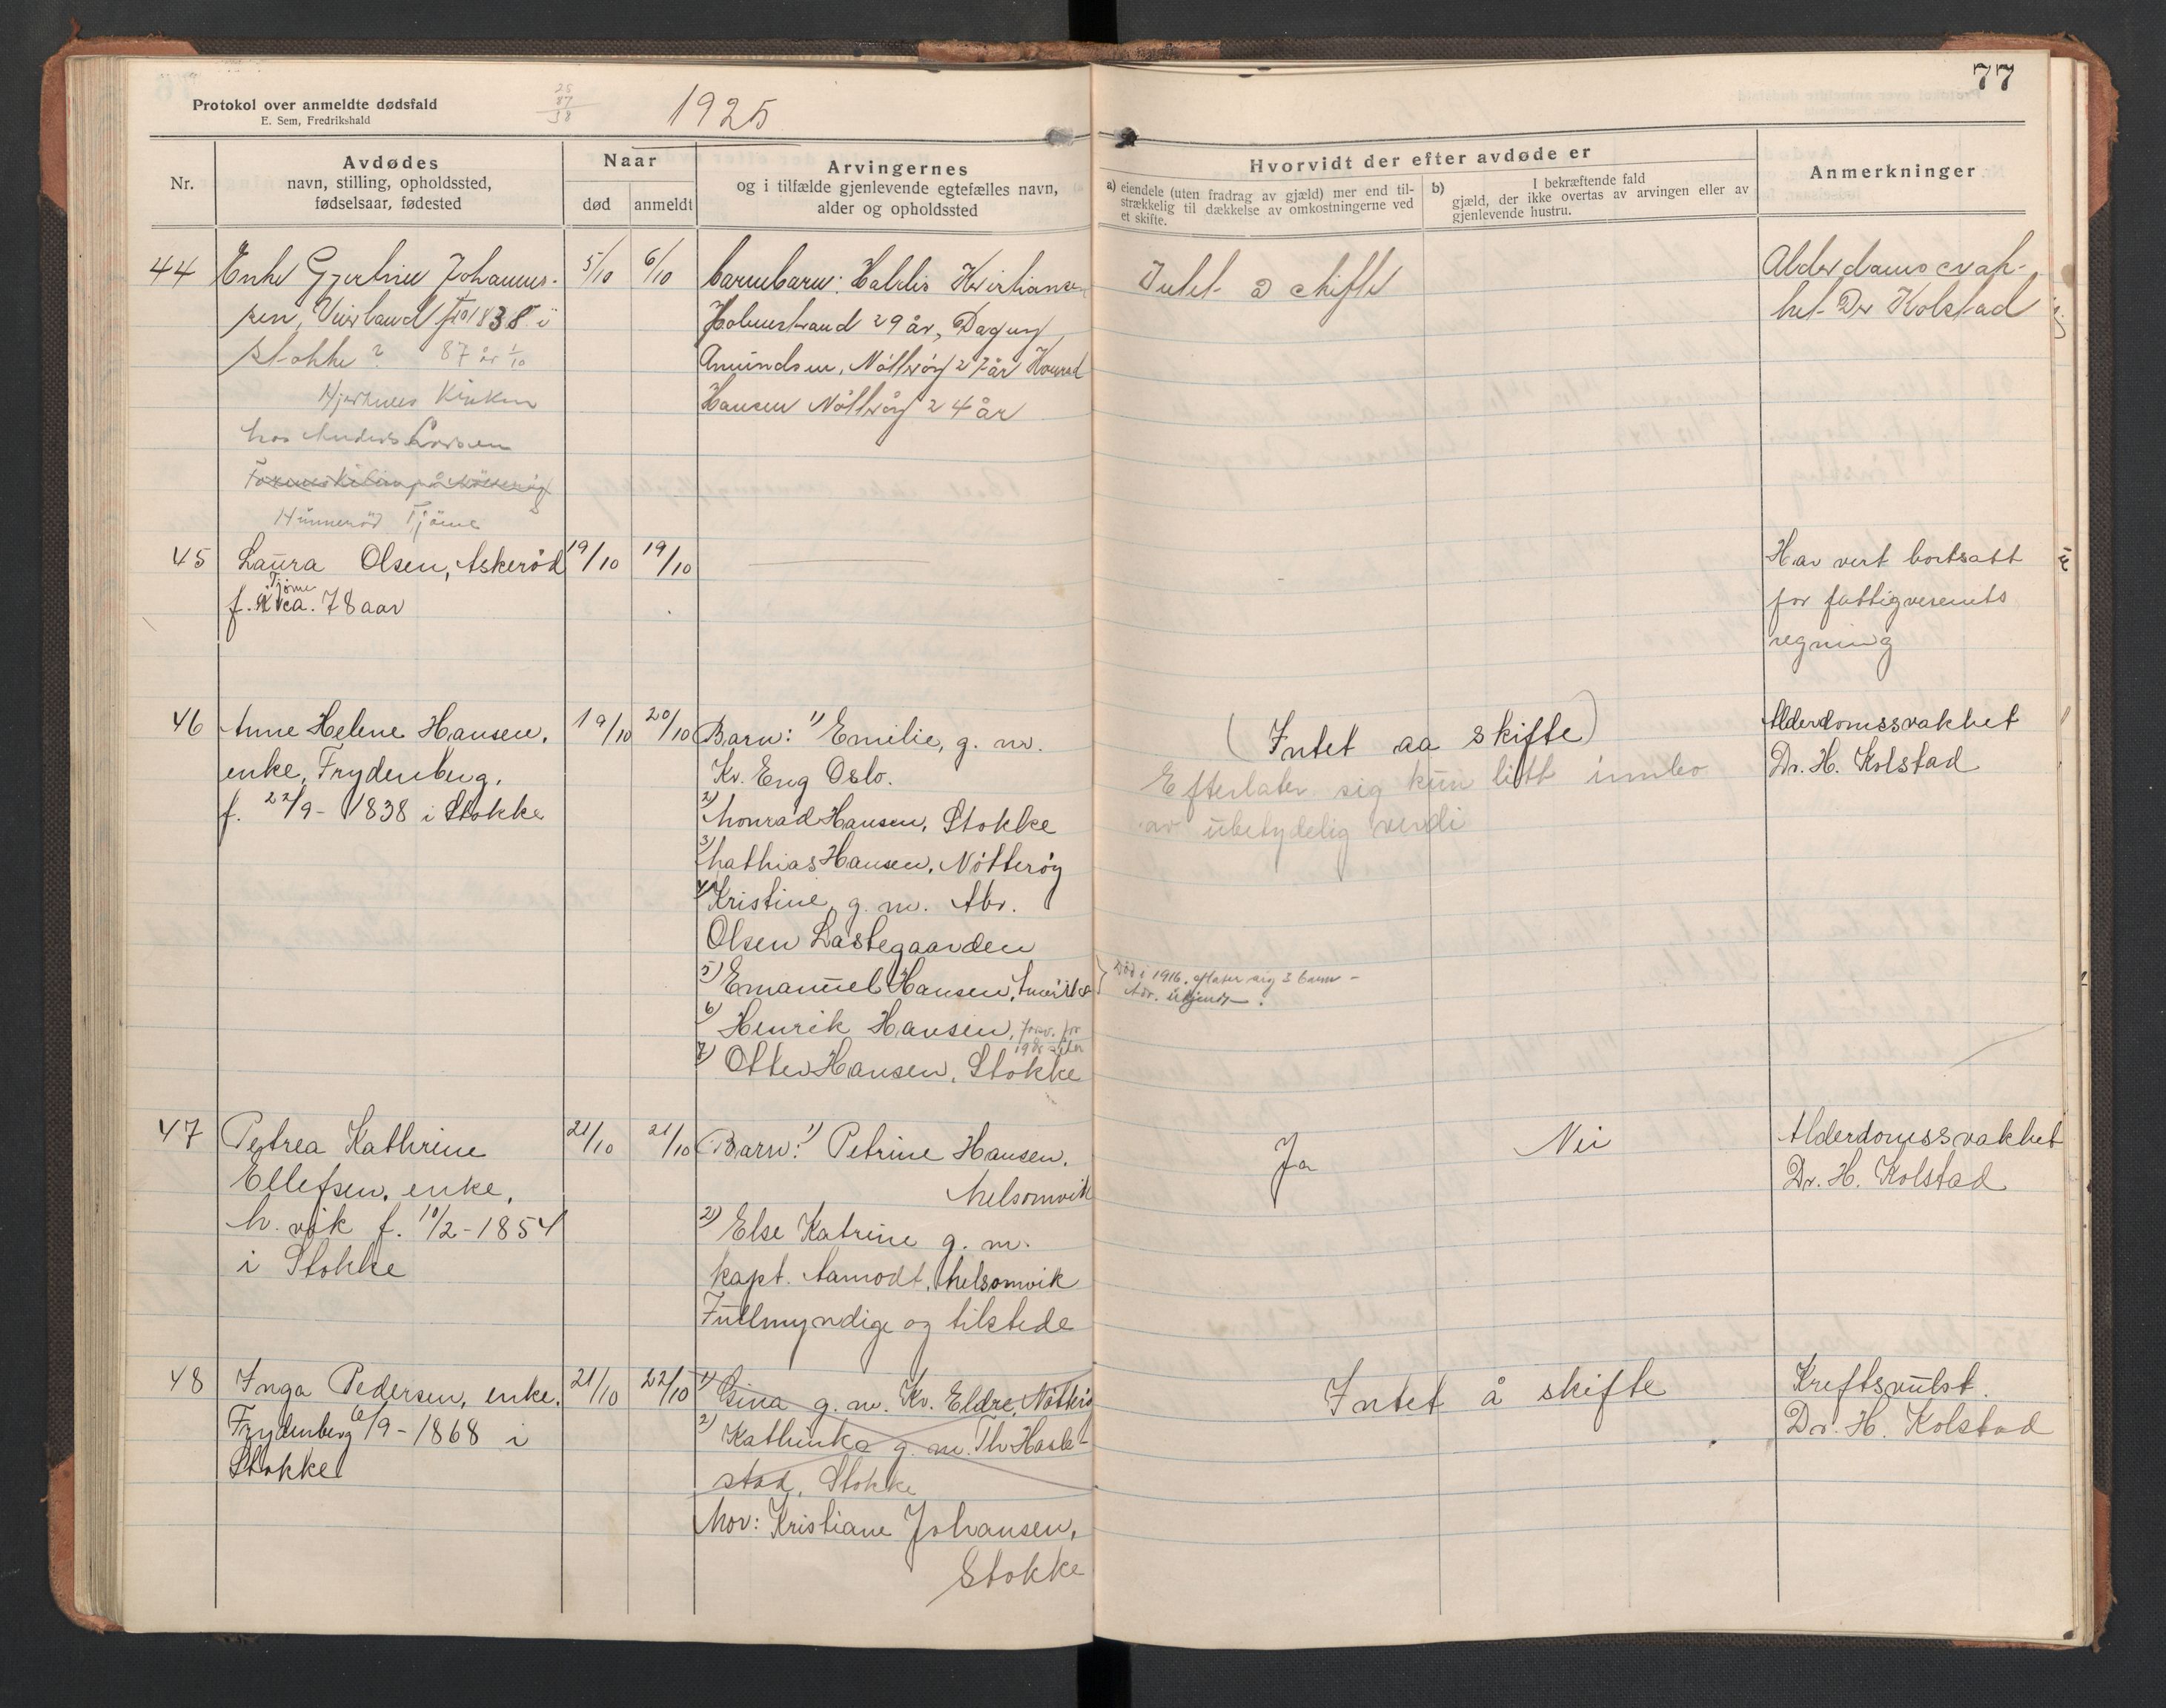 77
Protokol over anmeldte dødsfald
E. Sem, Fredrikshald
25
87
38
1925
Nr.
Avdødes
navn, stilling, opholdssted,
fødselsaar, fødested
Naar
død
anmeldt
Arvingernes
og i tilfælde gjenlevende egtefælles navn,
alder og opholdssted
Hvorvidt der efter avdøde er
a) eiendele (uten fradrag av gjæld) mer end til-
strækkelig til dækkelse av omkostningerne ved
et skifte.
b) I bekræftende fald
gjæld, der ikke overtas av arvingen eller av
gjenlevende hustru.
Anmerkninger
44
Enke Gjertine Johannes-
sen, Vierland 1838 i
Stokke? 87 år 1/10
Hjertnes
hos Anders Larsen
Hünneröd Tjöme
5/10
6/10
barnebarn: Haldis Kristiansen
Holmestrand 29 år, Dagny
Amundsen, Nötteröy 27 år Konrad
Hansen Nötteröy 24 år
Intet å skifte
Alderdomssvak-
het Dr Kolstad
45
Laura Olsen, Askeröd
Tjøme
f. ca. 78 aar
19/10
19/10
Har vert bortsatt
for fattigvesenets
regning
46
Anne Helene Hansen,
enke, Frydenberg,
f. 22/9 - 1838 i Stokke
19/10
20/10
Barn: 1) Emilie, g. m.
Kr. Eng Oslo.
2) Monrad Hansen, Stokke
3) Mathias Hansen, Nötteröy
4) Kristine, g. m. Abr.
Olsen Lastegaarden
5) Emanuel Hansen, Amerika
6) Henrik Hansen, forsv. for
19 år siden
7) Otter Hansen, Stokke
(Intet aa skifte)
Efterlater sig kun litt innbo
av übetydelig verdi
Död i 1916, eflater sig 3 barn -
Adr. ükjendt.
Alderdomssvakhet
Dr. H. Kolstad
47
Petrea Kathrine
Ellefsen, enke,
M. vik f. 10/2 - 1854
i Stokke
21/10
21/10
Barn: 1) Petrine Hansen,
Melsomvik
2) Else Katrine g. m.
kapt. Aamodt, Melsomvik
Fullmyndige og tilstede
Ja
Nei
Alderdomssvakhet
Dr. H. Kolstad
48
Inga Pedersen, enke,
Frydenberg 6/9 - 1868 i
Stokke
21/10
22/10
1) Gina g. m. Kr. Eldre, Nötterö
2) Kathinka g. m. Th Hasle-
stad, Stokke
Mor: Kristiane Johansen,
Stokke
Intet å skifte
Kreftsvulst.
Dr. H. Kolstad